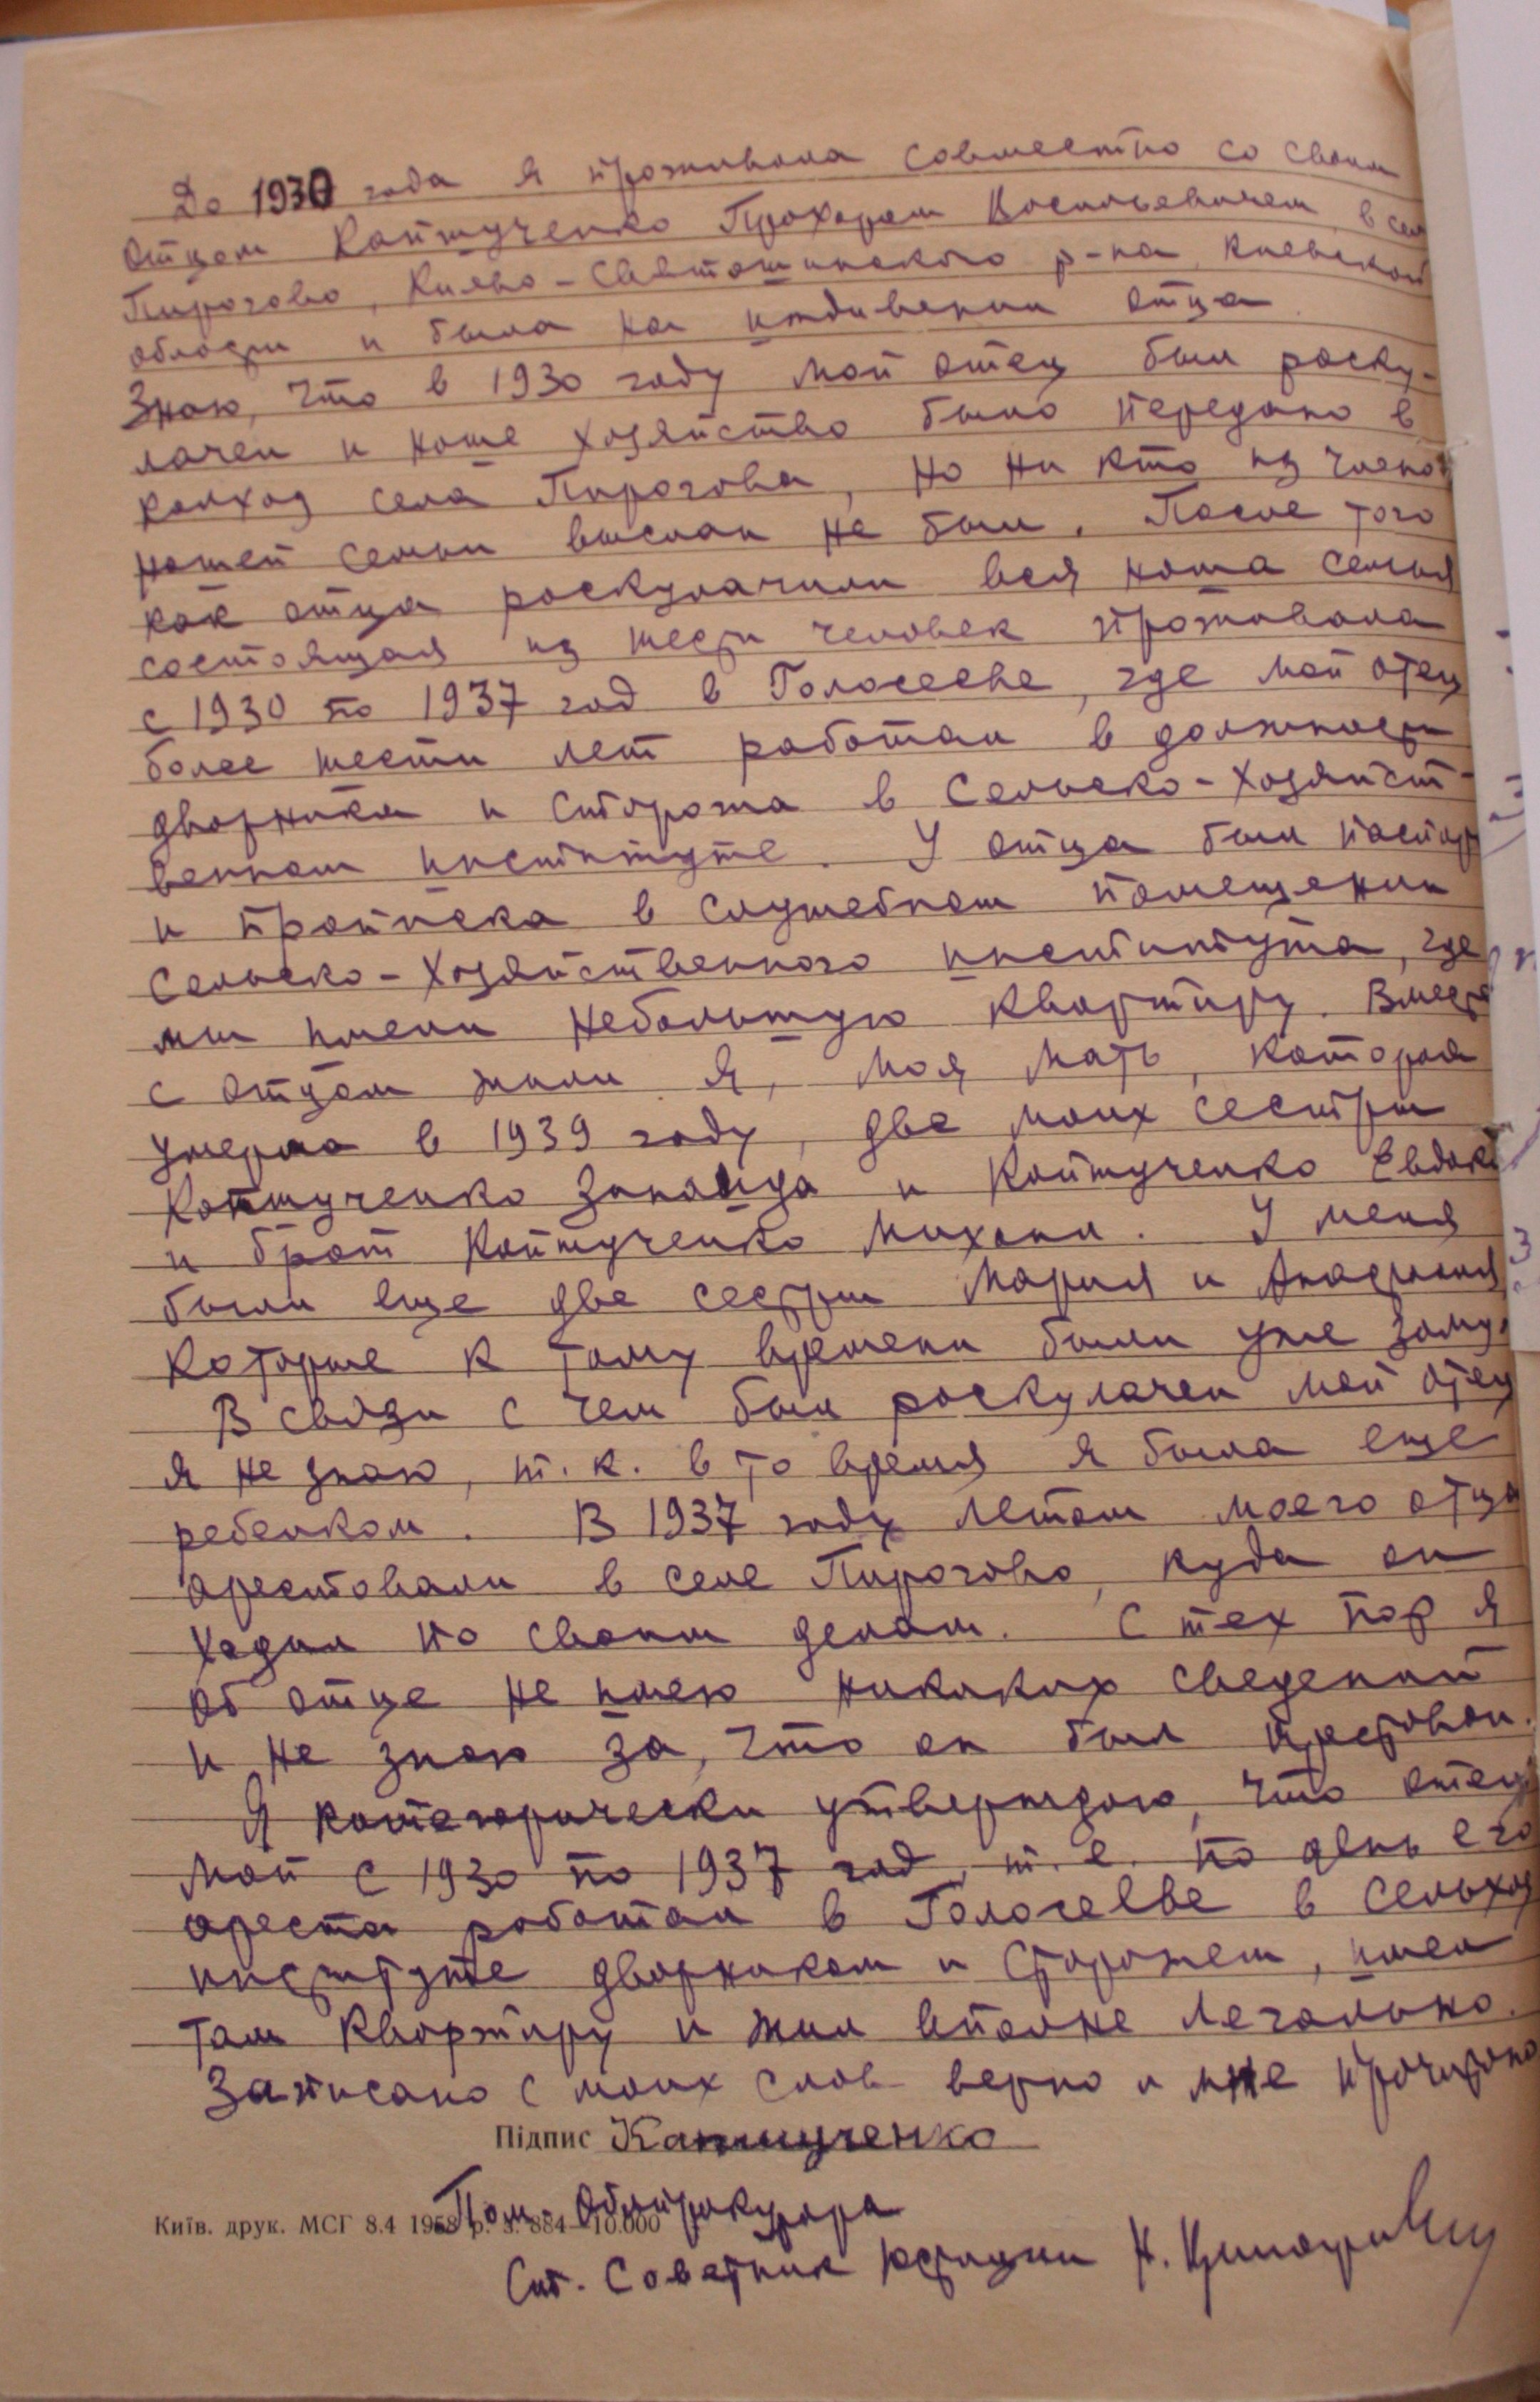 До 1930 года я проживала совместно со своим
отцом Капшученко Прохором Васильевичем в сел
Пирогово, Киево-Святошинского р-на, Киевской
области и была на иждивении отца.
Знаю, что в 1930 году мой отец был раску-
лачен и наше хозяйство было передано в
колхоз села Пирогова, но ни кто из членов
нашей семьи выслан не был. После того
как отца раскулачили вся наша семья
состоящая из шести человек проживала
с 1930 по 1937 год в Голосееве, где мой отец
более шести лет работал в должности
дворника и сторожа в Сельско-хозяйст-
венном институте. У отца был паспорт
и прописка в служебном помещении
Сельско-хозяйственного института, где
мы имели небольшую квартиру. Вместе
с отцом жили я, моя мать, которая
умерла в 1939 году, две моих сестры
Капшученко Зинаида и Капшученко Евдоки
и брат Капшученко Михаил. У меня
были еще две сестры Мария и Анастасия
которые к тому времени были уже замуж
В связи с чем был раскулачен мой отец
я не знаю, т.к. в то время я была еще
ребенком. В 1937 году летом моего отца
арестовали в селе Пирогово, куда он
ходил по своим делам. С тех пор я
об отце не имею никаких сведений
и не знаю за, что он был арестован.
Я категорически утверждаю, что отец
мой с 1930 по 1937 год, т.е. по день его
ареста работал в Голосееве в Сельхоз
институте дворником и сторожем, имел
там квартиру и жил вполне легально.
Записано с моих слов верно и мне прочитано
Підпис Капшученко
Пом. Облпрокурора
Київ. друк. МСГ 8.4 1958 р. з. 884—10.000
Мл. Советник юстиции Н.